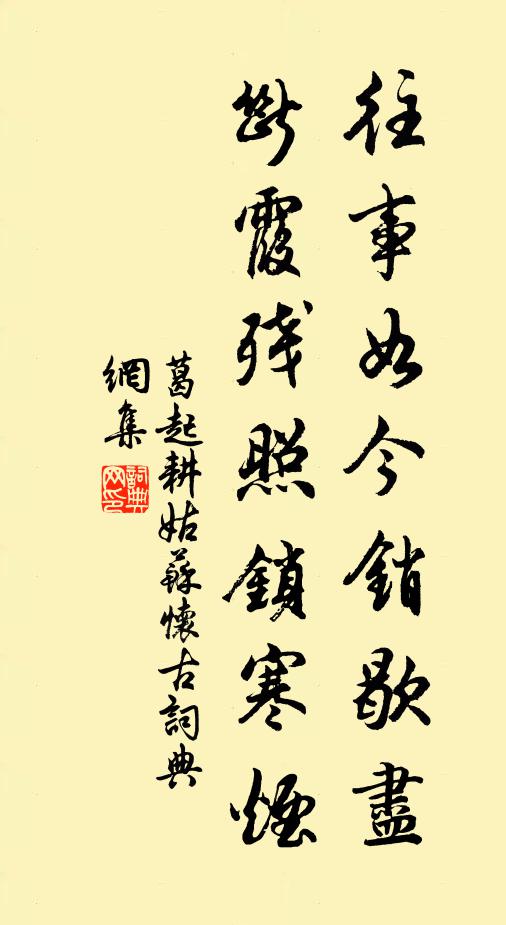 往事如今銷歇盡
斷霞残照鎖寒煙
葛起耕姑蘇懷古詞典
網集
詞典
网印